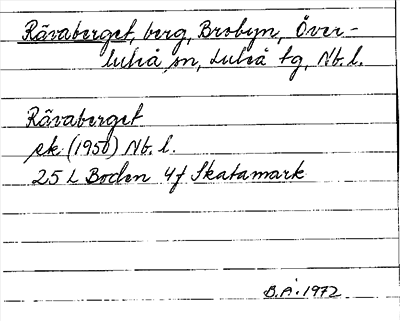 Rävaberget, berg, Brobyn, Över-
luleå sn, Luleå tg, Nb. l.
Rävaberget
ek. (1950) Nb. l.
25 L Boden 4f Skatamark
B.Å. 1972